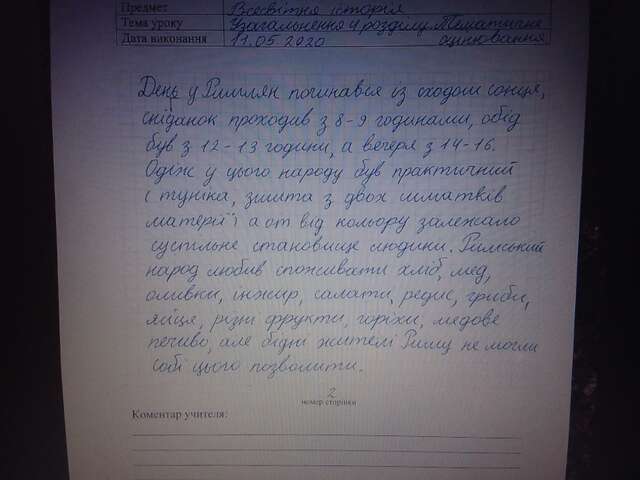 Предмет Всесвітня історія
Тема уроку Узагальнення 4 розділу. Тематичне
Дата виконання 11.05.2020 оцінювання
День у Римлян починався із сходом сонця,
сніданок проходив з 8-9 годинами, обід
був з 12-13 години, а вечеря з 14-16.
Одіж у цього народу був практичний
і туніка, зшита з двох шматків
матерії, а от від кольору залежало
суспільне становище людини. Римський
народ любив споживати хліб, мед,
оливки, інжир, салати, редис, гриби,
яйця, різні фрукти, горіхи, медове
печиво, але бідні жителі Риму не могли
собі цього позволити.
2
номер сторінки
Коментар учителя: